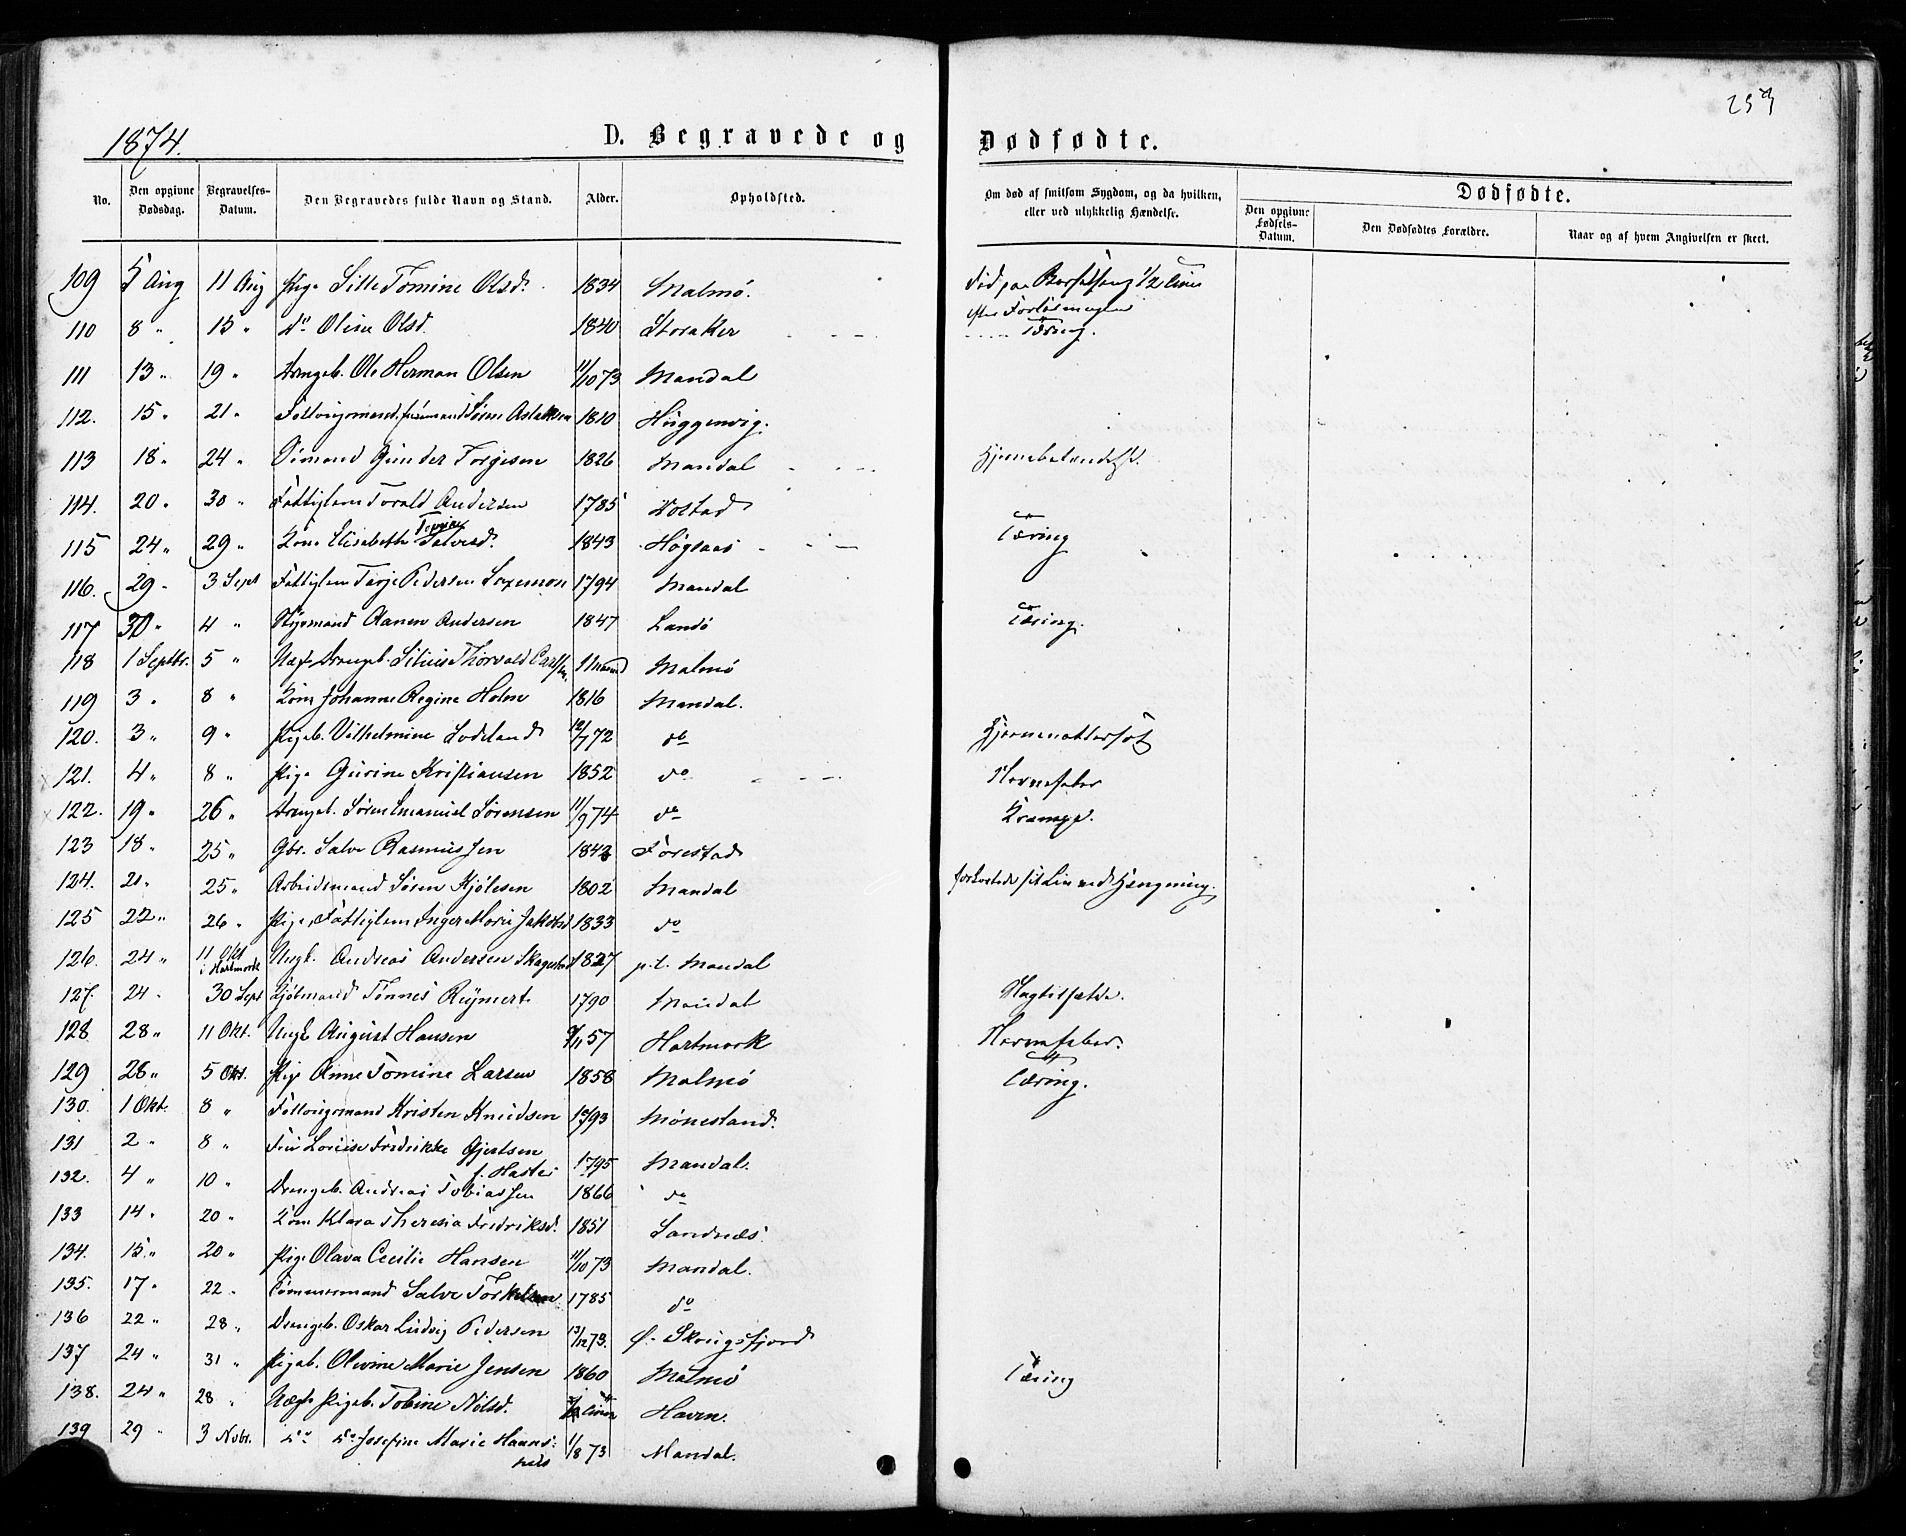 1874.
D. Begravede og
Dødfødte.
253
No.
Den opgivne Dødsdag.
Begravelses-Datum.
Den Begravedes fulde Navn og Stand.
Alder.
Opholdsted.
Om død af smitsom Sygdom, og da hvilken, eller ved ulykkelig Hændelse.
Dødfødte.
Den opgivne Fødsels-Datum.
Den Dødfødtes Forældre.
Naar og af hvem Angivelsen er skeet.
109 5 Aug 11 Aug Pige Sille Tomine Olsd. 1834 Malmø. Død paa Barselseng 1/2 Time
efter Forløsningen
110 8 " 15 " do Oline Olsd. 1840 Storaker Tæring.
111 13 " 19 " Drengeb. Ole Herman Olsen 11/10 73 Mandal
112. 15 " 21 " Søren Aslaksen 1810 Huggenvig.
113 18 " 24 " Sømand Gunder Torgesen 1826 Mandal Hjernebetændelse.
114. 20 " 30 " Fattiglem Torald Andersen 1785 Vostad
115 24 " 29 " Kone Elisabeth Tomine Salvesd. 1843 Høgsaas Tæring
116. 29 " 3 Sept Fattiglem Tarje Pedersen 1794 Mandal
117 30 " 4 " Styrmand Aanen Andersen 1847 Landø Tæring.
118 1 Septbr. 5 " Uægt Drengeb. Silius Thorvald Carlsen 11 Malmø
119 3 " 8 " Kone Johanne Regine Holm 1816 Mandal.
120. 3 " 9 " Pigeb. Vilhelmine Lodeland 12/7 72 do
121. 4 " 8 " Pige Gurine Kristiansen 1852 do Nervefeber
122. 19 " 26 " Drengeb. Søren Emanuel Sørensen 11/9 74 do Krampe.
123 18 " 25 " Gbr. Salve Rasmussen 1842 Førestad
124. 21 " 25 " Arbeidsmand Søren Kjølesen 1802 Mandal forkortede sit Liv ved Hængning.
125 22 " 26 " Pige, Fattiglem Inger Marie Jakobsd 1833 do
126. 24 " 11 Okt i Hartmark Ungk. Andreas Andersen Skagestad 1827 p.t. Mandal
127. 24 " 30 Sept Tønnes Reymert 1790 Mandal Slagtilfælde.
128 28 " 11 Okt. Ungk August Hansen 57 Hartmark Nervefeber.
129 28 " 5 Okt. Pige Anne Tomine Larsen 1858 Malmø Tæring.
130. 1 Okt. 8 " Kristen Knudsen 1793 Mønestand.
131 2 " 8 " Louise Fredrikke Gjertsen
f. Haste 1795 Mandal.
132. 4 " 10 " Drengeb. Andreas Tobiassen 1866 do
133 14 " 20 " Kone Klara Theresia Fredriksd. 1851 Sandnæs.
134. 15 " 20 " Pige Olava Cecilie Hansen 11/10 73 Mandal.
135. 17 " 22 " Tømmermand Salve Torkelsen 1785 do
136 22 " 28 " Drengeb. Oskar Ludvig Pedersen 13/12 73. Ø. Skougsfjord
137 24 " 31 " Pigeb. Olevine Marie Jensen 1860 Malmø Tæring
138. 24 " 28 " Uægte Pigeb. Tobine Nilsd. Havn.
139 29 " 3 Nobr. do do Josefine Marie Haans- 1/8 73 Mandal.